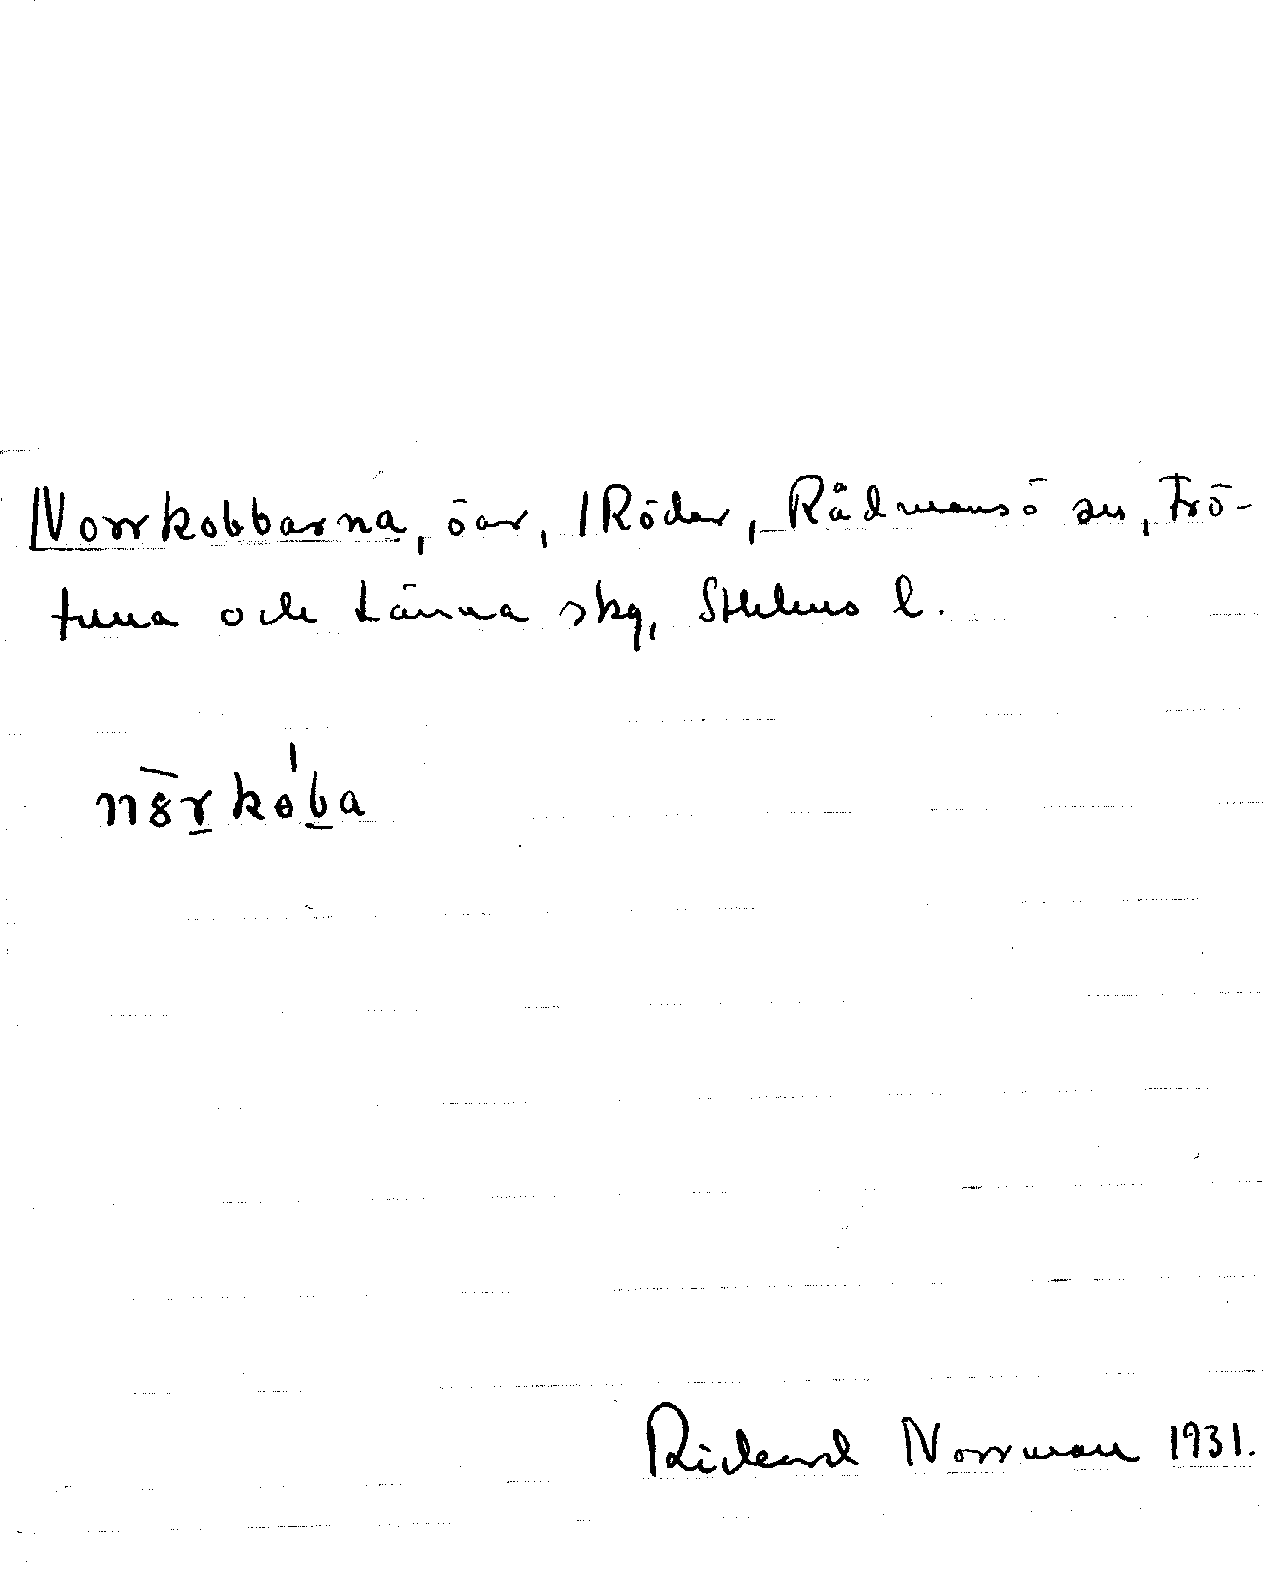 Norrkobbarna, öar, I Röder, Rådmansö sn, Frö-
tuna och Länna skg, Sthlms l.
Rickard Norrman 1931.